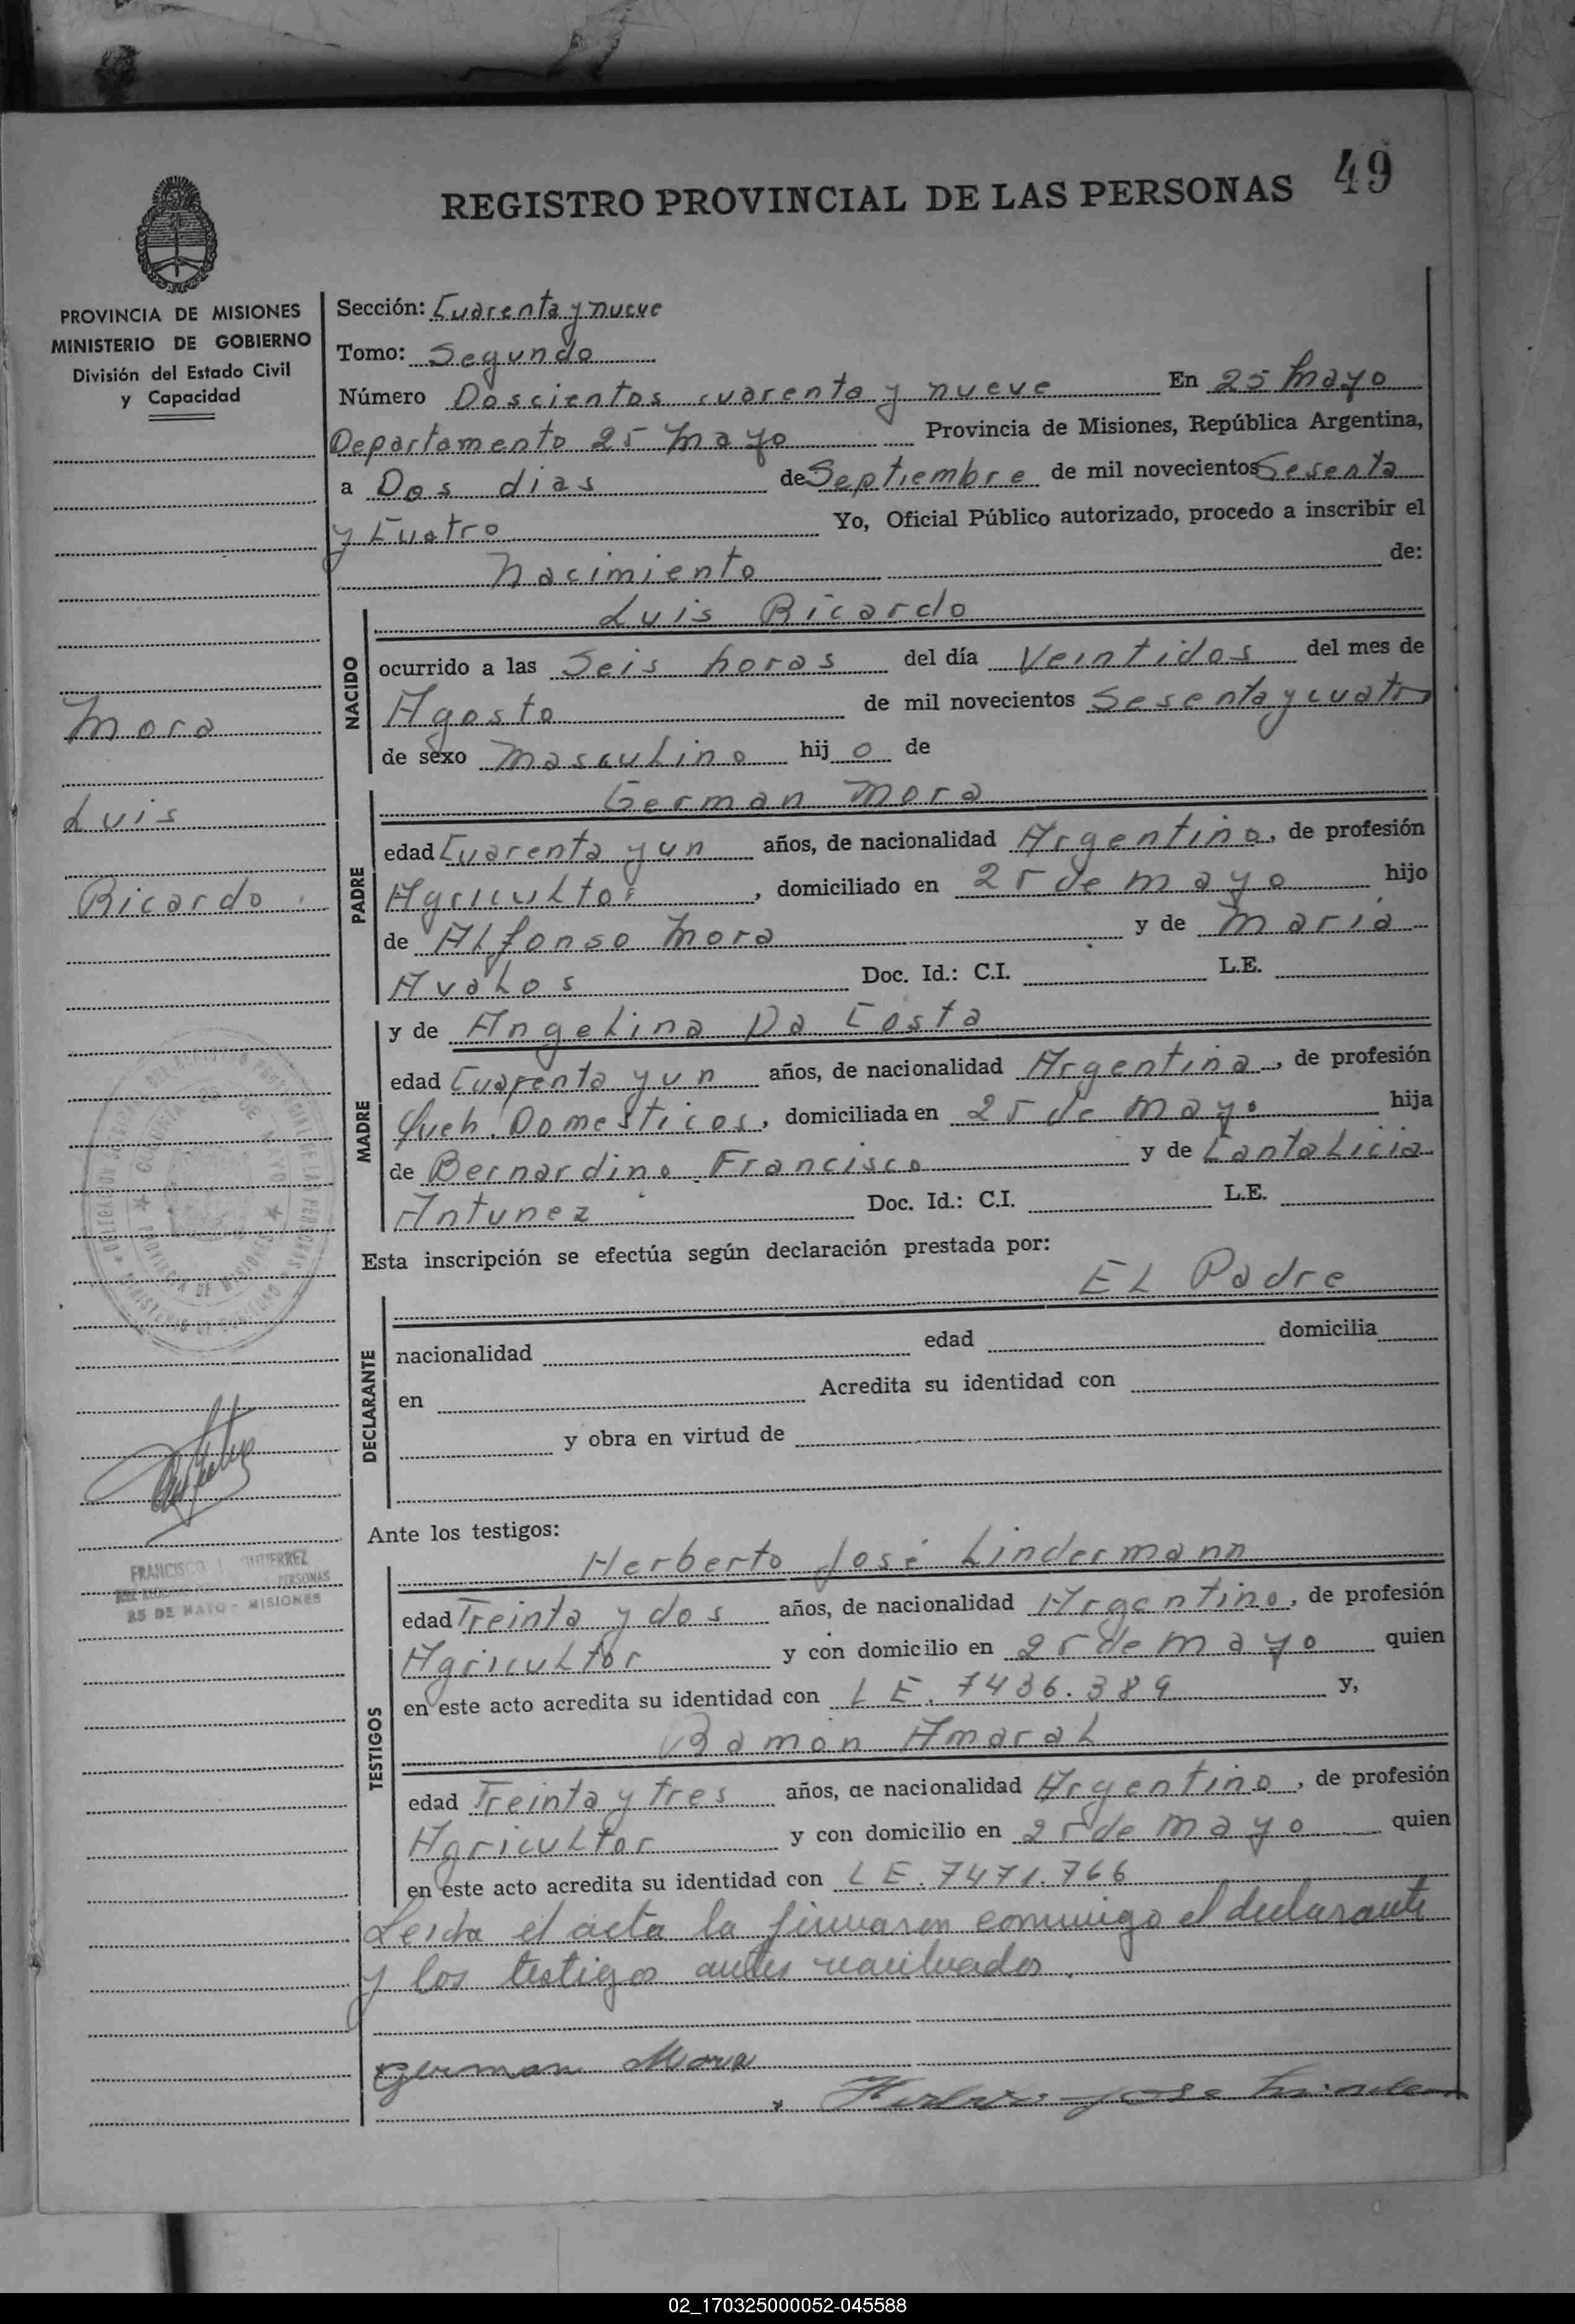 49
REGISTRO PROVINCIAL DE LAS PERSONAS
PROVINCIA DE MISIONES
MINISTERIO DE GOBIERNO
División del Estado Civil
y Capacidad
Mora
Luis
Ricardo
FRANCISCO GUTIERREZ
PERSONAS
25 DE MAYO - MISIONES
Sección: Cuarenta y nueve
Tomo: Segundo
Número Doscientos cuarenta y nueve En 25 Mayo
Departamento 25 Mayo Provincia de Misiones, República Argentina,
a Dos dias de Septiembre de mil novecientos Sesenta
y Cuatro Yo, Oficial Público autorizado, procedo a inscribir el
Nacimiento de:
Luis Ricardo
NACIDO
ocurrido a las Seis horas del día Veintidos del mes de
Agosto de mil novecientos Sesenta y cuatro
de sexo Masculino hijo de
German Mora
PADRE
edad Cuarenta y un años, de nacionalidad Argentino, de profesión
Agricultor, domiciliado en 25 de mayo hijo
de Alfonso Mora y de Maria
Avalos Doc. Id.: C.I. L.E.
MADRE
y de Angelina Da Costa
edad Cuarenta y un años, de nacionalidad Argentina, de profesión
Queh. Domesticos, domiciliada en 25 de mayo hija
de Bernardino Francisco y de Cantalicia
Antunez Doc. Id.: C.I. L.E.
Esta inscripción se efectúa según declaración prestada por:
El Padre
DECLARANTE
nacionalidad edad domicilia
en Acredita su identidad con
y obra en virtud de
Ante los testigos:
Herberto José Lindermann
TESTIGOS
edad Treinta y dos años, de nacionalidad Argentino, de profesión
Agricultor y con domicilio en 25 de mayo quien
en este acto acredita su identidad con L E. 7436.389 y,
Ramón Amaral
edad Treinta y tres años, de nacionalidad Argentino, de profesión
Agricultor y con domicilio en 25 de mayo quien
en este acto acredita su identidad con L E. 7471.766
Leida el acta la firmaron conmigo el declarante
y los testigos antes
German Mora
Jose
02_170325000052-045588